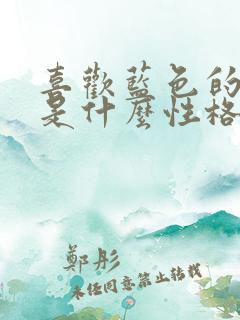 喜歡藍色的
是什麼性格
鄭彤
未經同意禁止轉載